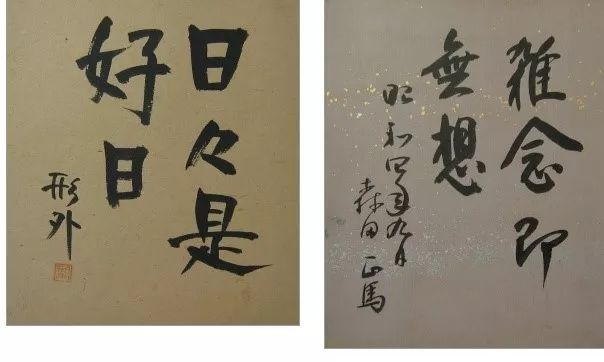 日々是
好日
形外
雑念即
無想
昭和四年九月
森田正馬